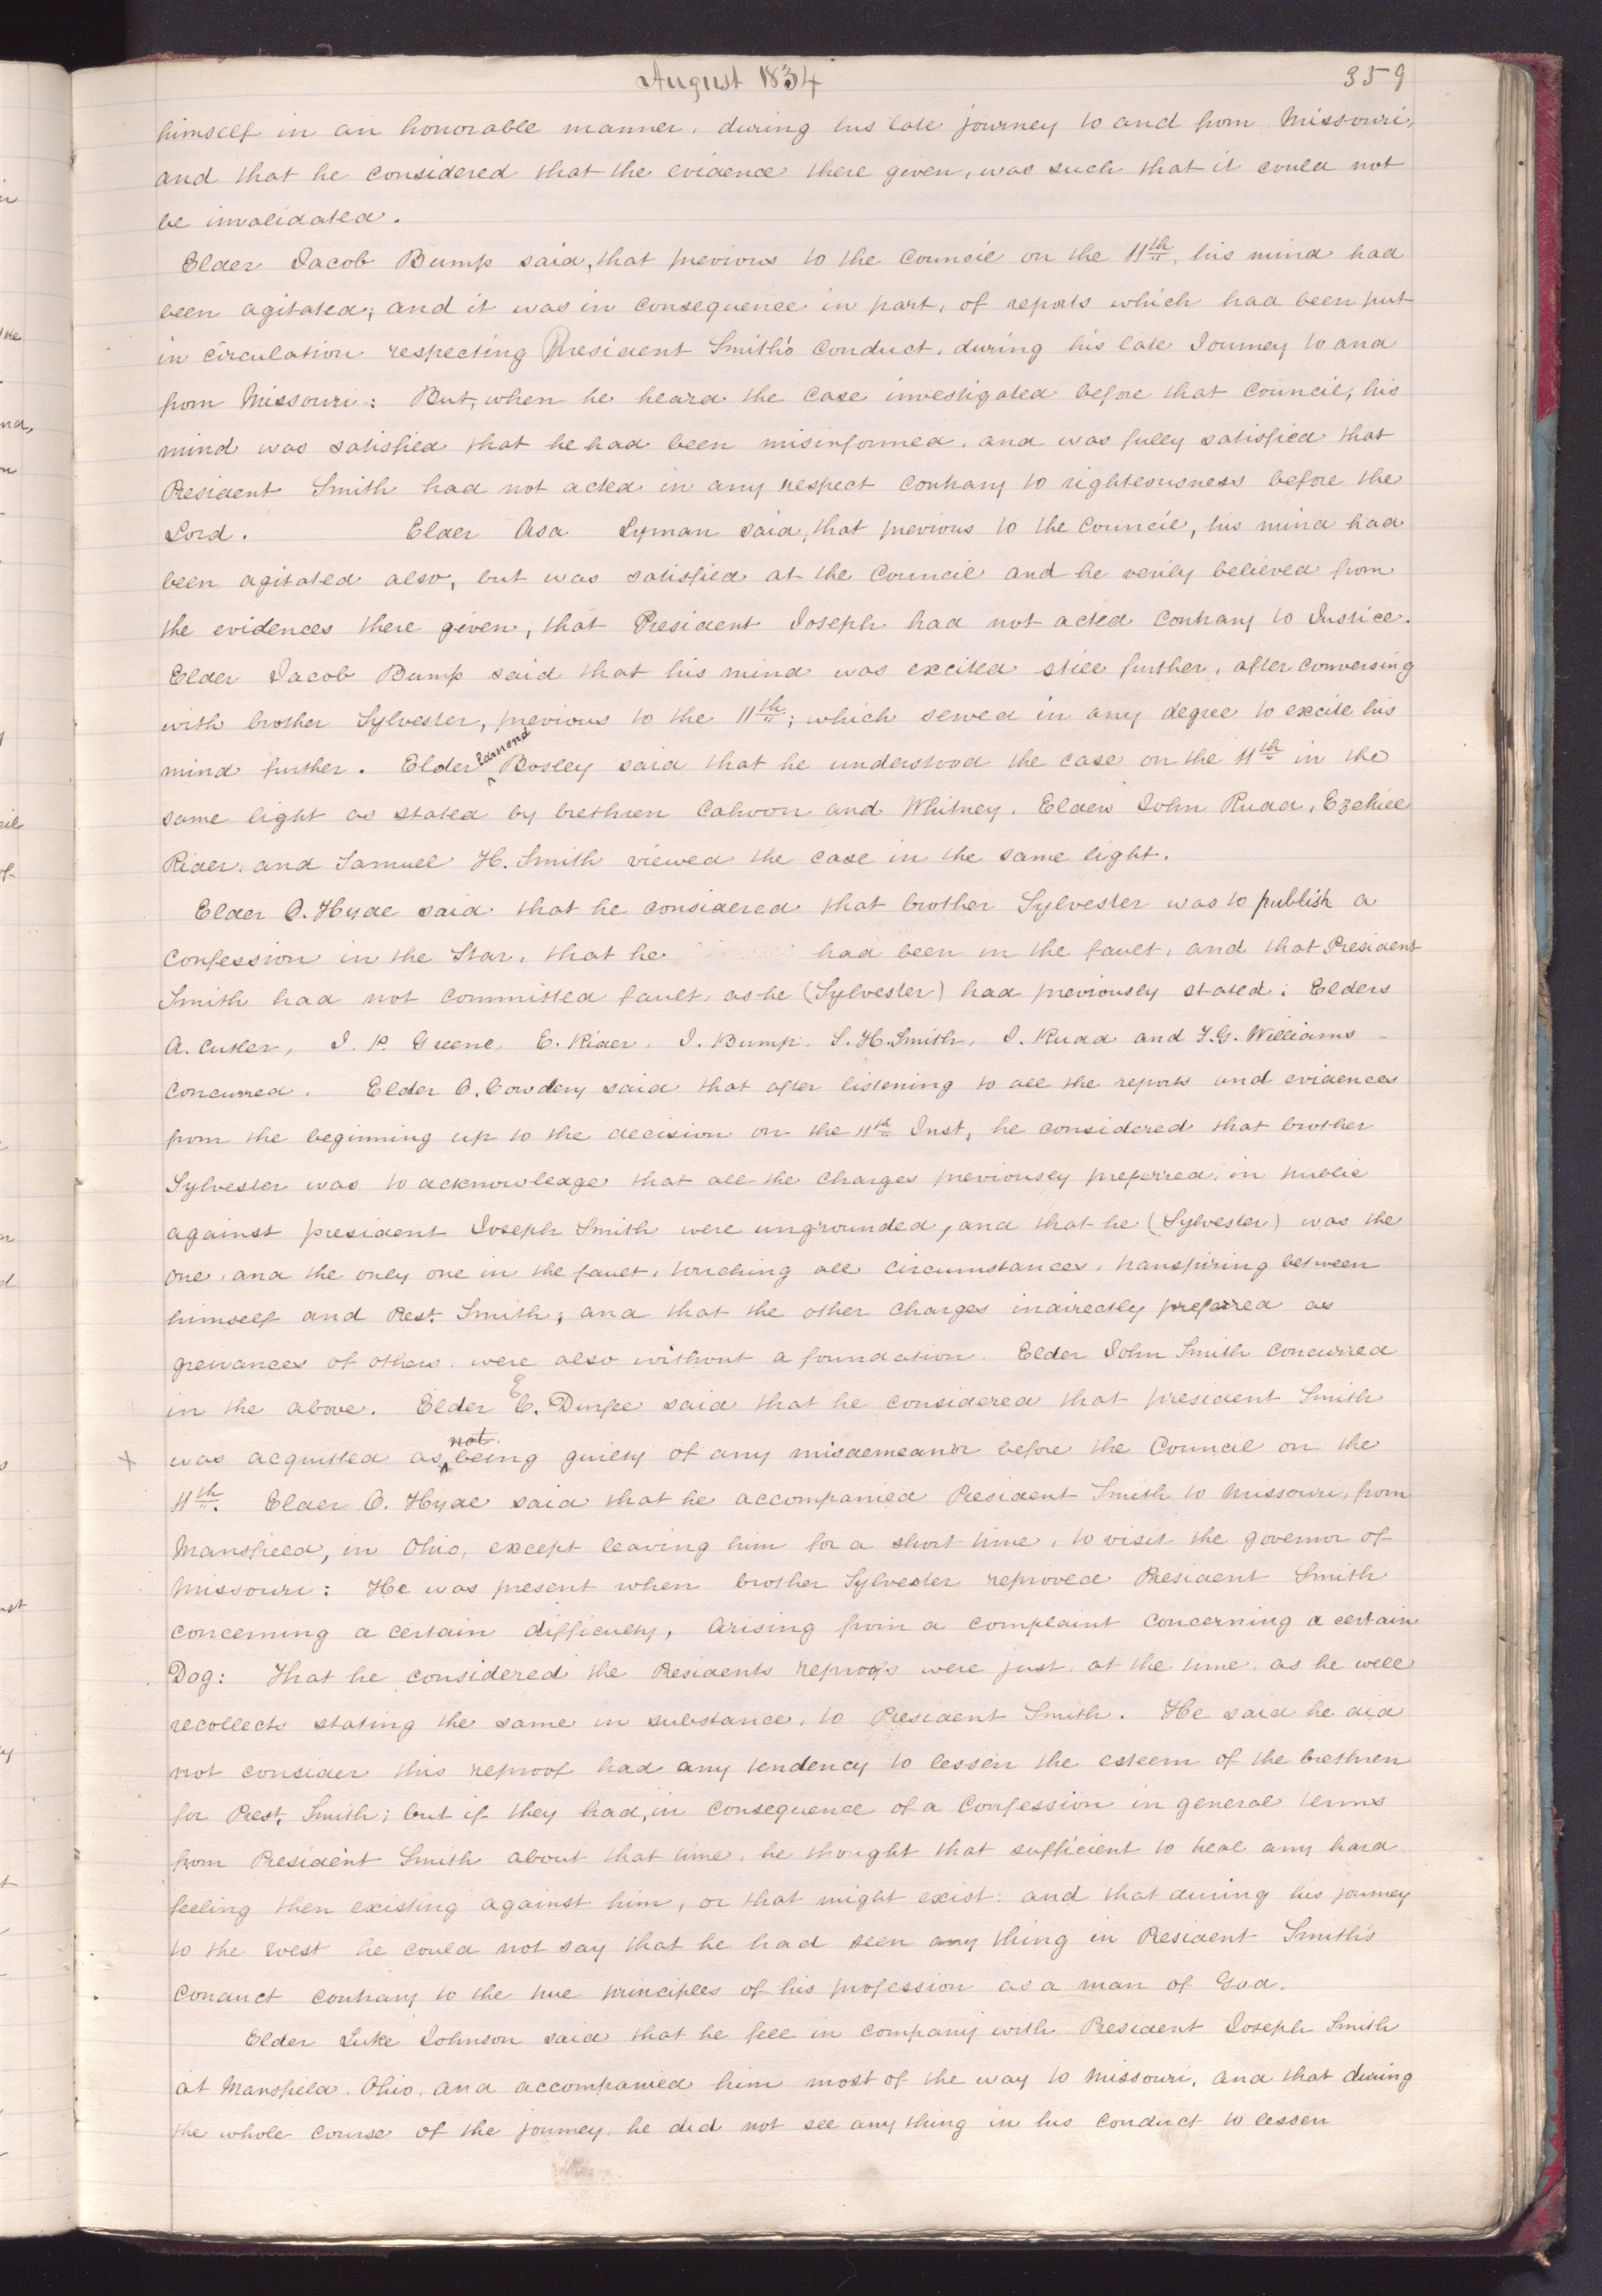 August 1834
359
himself in an honorable manner, during his late journey to and from Missouri,
and that he considered that the evidence there given, was such that it could not
be invalidated.
Elder Jacob Bump said, that previous to the council on the 11th, his mind had
been agitated; and it was in consequence in part, of reports which had been put
in circulation respecting President Smith's conduct, during his late Journey to and
from Missouri: But, when he heard the case investigated before that council, his
mind was satisfied that he had been misinformed, and was fully satisfied that
President Smith had not acted in any respect contrary to righteousness before the
Lord. Elder Asa Lyman said, that previous to the council, his mind had
been agitated also, but was satisfied at the council and he verily believed from
the evidences there given, that President Joseph had not acted contrary to Justice.
Elder Jacob Bump said that his mind was excited still further, after conversing
with brother Sylvester, previous to the 11th; which served in any degree to excite his
mind further. Elder Edmond Bosley said that he understood the case on the 11th in the
same light as stated by brethren Cahoon and Whitney. Elders John Rudd, Ezekiel
Rider, and Samuel H. Smith viewed the case in the same light.
Elder O. Hyde said that he considered that brother Sylvester was to publish a
confession in the Star, that he had been in the fault, and that President
Smith had not committed fault, as he (Sylvester) had previously stated: Elders
A. Cutler, J. P. Greene, E. Rider, J. Bump, S. H. Smith, J. Rudd and F. G. Williams
concurred. Elder O. Cowdery said that after listening to all the reports and evidences
from the beginning up to the decision on the 11th Inst, he considered that brother
Sylvester was to acknowledge that all the charges previously preferred, in public
against president Joseph Smith were ungrounded, and that he (Sylvester) was the
one, and the only one in the fault, touching all circumstances, transpiring between
himself and Prest. Smith; and that the other charges indirectly preferred as
greivances of others, were also without a foundation. Elder John Smith concurred
in the above. Elder E. Durfee said that he considered that president Smith
was acquitted as not being guilty of any misdemeanor before the Council on the
11th. Elder O. Hyde said that he accompanied President Smith to Missouri, from
Mansfield, in Ohio, except leaving him for a short time, to visit the governor of
Missouri: He was present when brother Sylvester reproved President Smith
concerning a certain difficulty, arising from a complaint concerning a certain
Dog: That he considered the Presidents reproofs were just at the time, as he well
recollects stating the same in substance, to President Smith. He said he did
not consider this reproof had any tendency to lessen the esteem of the brethren
for Prest. Smith; but if they had, in consequence of a confession in general terms
from President Smith about that time, he thought that sufficient to heal any hard
feeling then existing against him, or that might exist: and that during his journey
to the west he could not say that he had seen any thing in President Smith's
conduct contrary to the true principles of his profession as a man of God.
Elder Luke Johnson said that he fell in company with President Joseph Smith
at Mansfield, Ohio, and accompanied him most of the way to Missouri, and that during
the whole course of the journey, he did not see any thing in his conduct to lessen